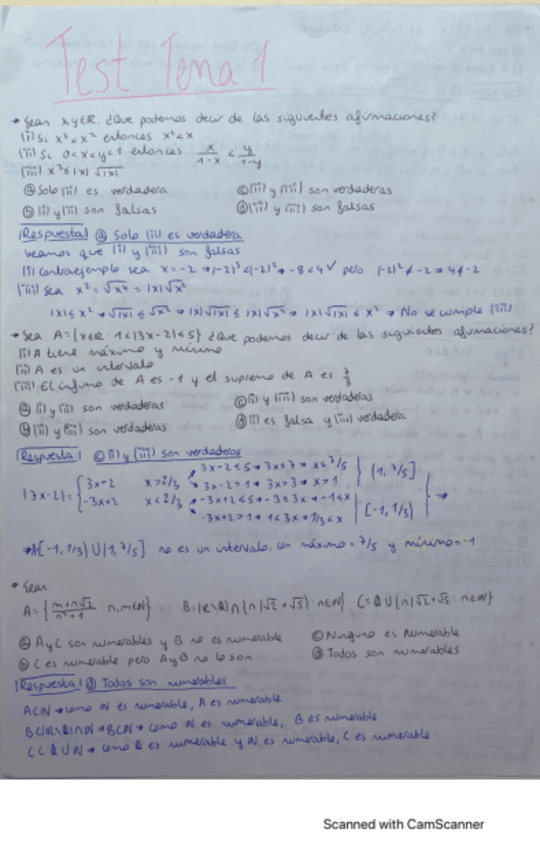 Test Tema 1
→ Sean x,y∈ℝ. ¿Que podemos decir de las siguientes afirmaciones?
(i) Si x³<x² entonces x²<x
(ii) Si 0<x<y<1 entonces x/(1-x) < y/(1-y)
(iii) x²≤|x|√|x|
ⓐ Solo (ii) es verdadera
ⓒ (ii) y (iii) son verdaderas
ⓑ (i) y (ii) son falsas
ⓓ (ii) y (iii) son falsas
|Respuesta| ⓐ Solo (ii) es verdadera
veamos que (i) y (iii) son falsas
(i) contraejemplo sea x=-2 → (-2)³<(-2)² → -8<4 ✓ pero (-2)² ≮ -2 → 4≮-2
(iii) Sea x²=√x⁴ = |x|√x²
|x|≤x² → √|x| ≤ √x² → |x|√|x| ≤ |x|√x² → |x|√|x| ≤ x² → No se cumple (iii)
→ Sea A={x∈ℝ: 1<|3x-2|≤5} ¿Que podemos decir de las siguientes afirmaciones?
(i) A tiene máximo y mínimo
(ii) A es un intervalo
(iii) El ínfimo de A es -1 y el supremo de A es 7/3
ⓐ (i) y (ii) son verdaderas
ⓒ (i) y (iii) son verdaderas
ⓑ (ii) y (iii) son verdaderas
ⓓ (i) es falsa y (iii) verdadera
|Respuesta| ⓒ (i) y (iii) son verdaderas
|3x-2|= { 3x-2 x>2/3 → 3x-2≤5 → 3x≤7 → x≤7/5
→ 3x-2>1 → 3x>3 → x>1 } (1, 7/5]
-3x+2 x<2/3 → -3x+2≤5 → -3≤3x → -1≤x
-3x+2>1 → 1<3x → 1/3<x } [-1, 1/3)
→ A[-1, 1/3) ∪ (1, 7/5] no es un intervalo, con máximo = 7/5 y mínimo = -1
• Sean:
A={ (m+n√2)/(n²+1) : n,m∈ℕ} B=(ℝ\ℚ)∩{n(√2+√5) : n∈ℕ} C=ℚ∪{n(√2+√5 : n∈ℕ}
ⓐ A y C son numerables y B no es numerable
ⓒ Ninguno es numerable
ⓑ C es numerable pero A y B no lo son
ⓓ Todos son numerables
|Respuesta| ⓓ Todos son numerables
A⊂ℕ → como ℕ es numerable, A es numerable
B⊂(ℝ\ℚ)∩ℕ → B⊂ℕ → como ℕ es numerable, B es numerable
C⊂ℚ∪ℕ → como ℚ es numerable y ℕ es numerable, C es numerable
Scanned with CamScanner